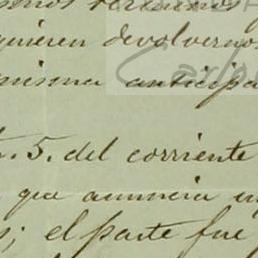 quieren devolverno
misma anticipa
5. del corriente
que anuncia u
; el parte fue